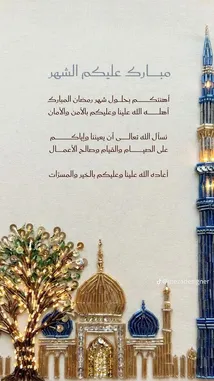 مبــارك عليكم الشهر
أهنئكــم بحلــول شهر رمضان المبارك
أهلــه الله علينا وعليكم بالأمن والأمان
نسأل الله تعالــى أن يعيننا وإياكــم
على الصيــام والقيام وصالح الأعمــال
أعاده الله علينا وعليكم بالخير والمسرّات